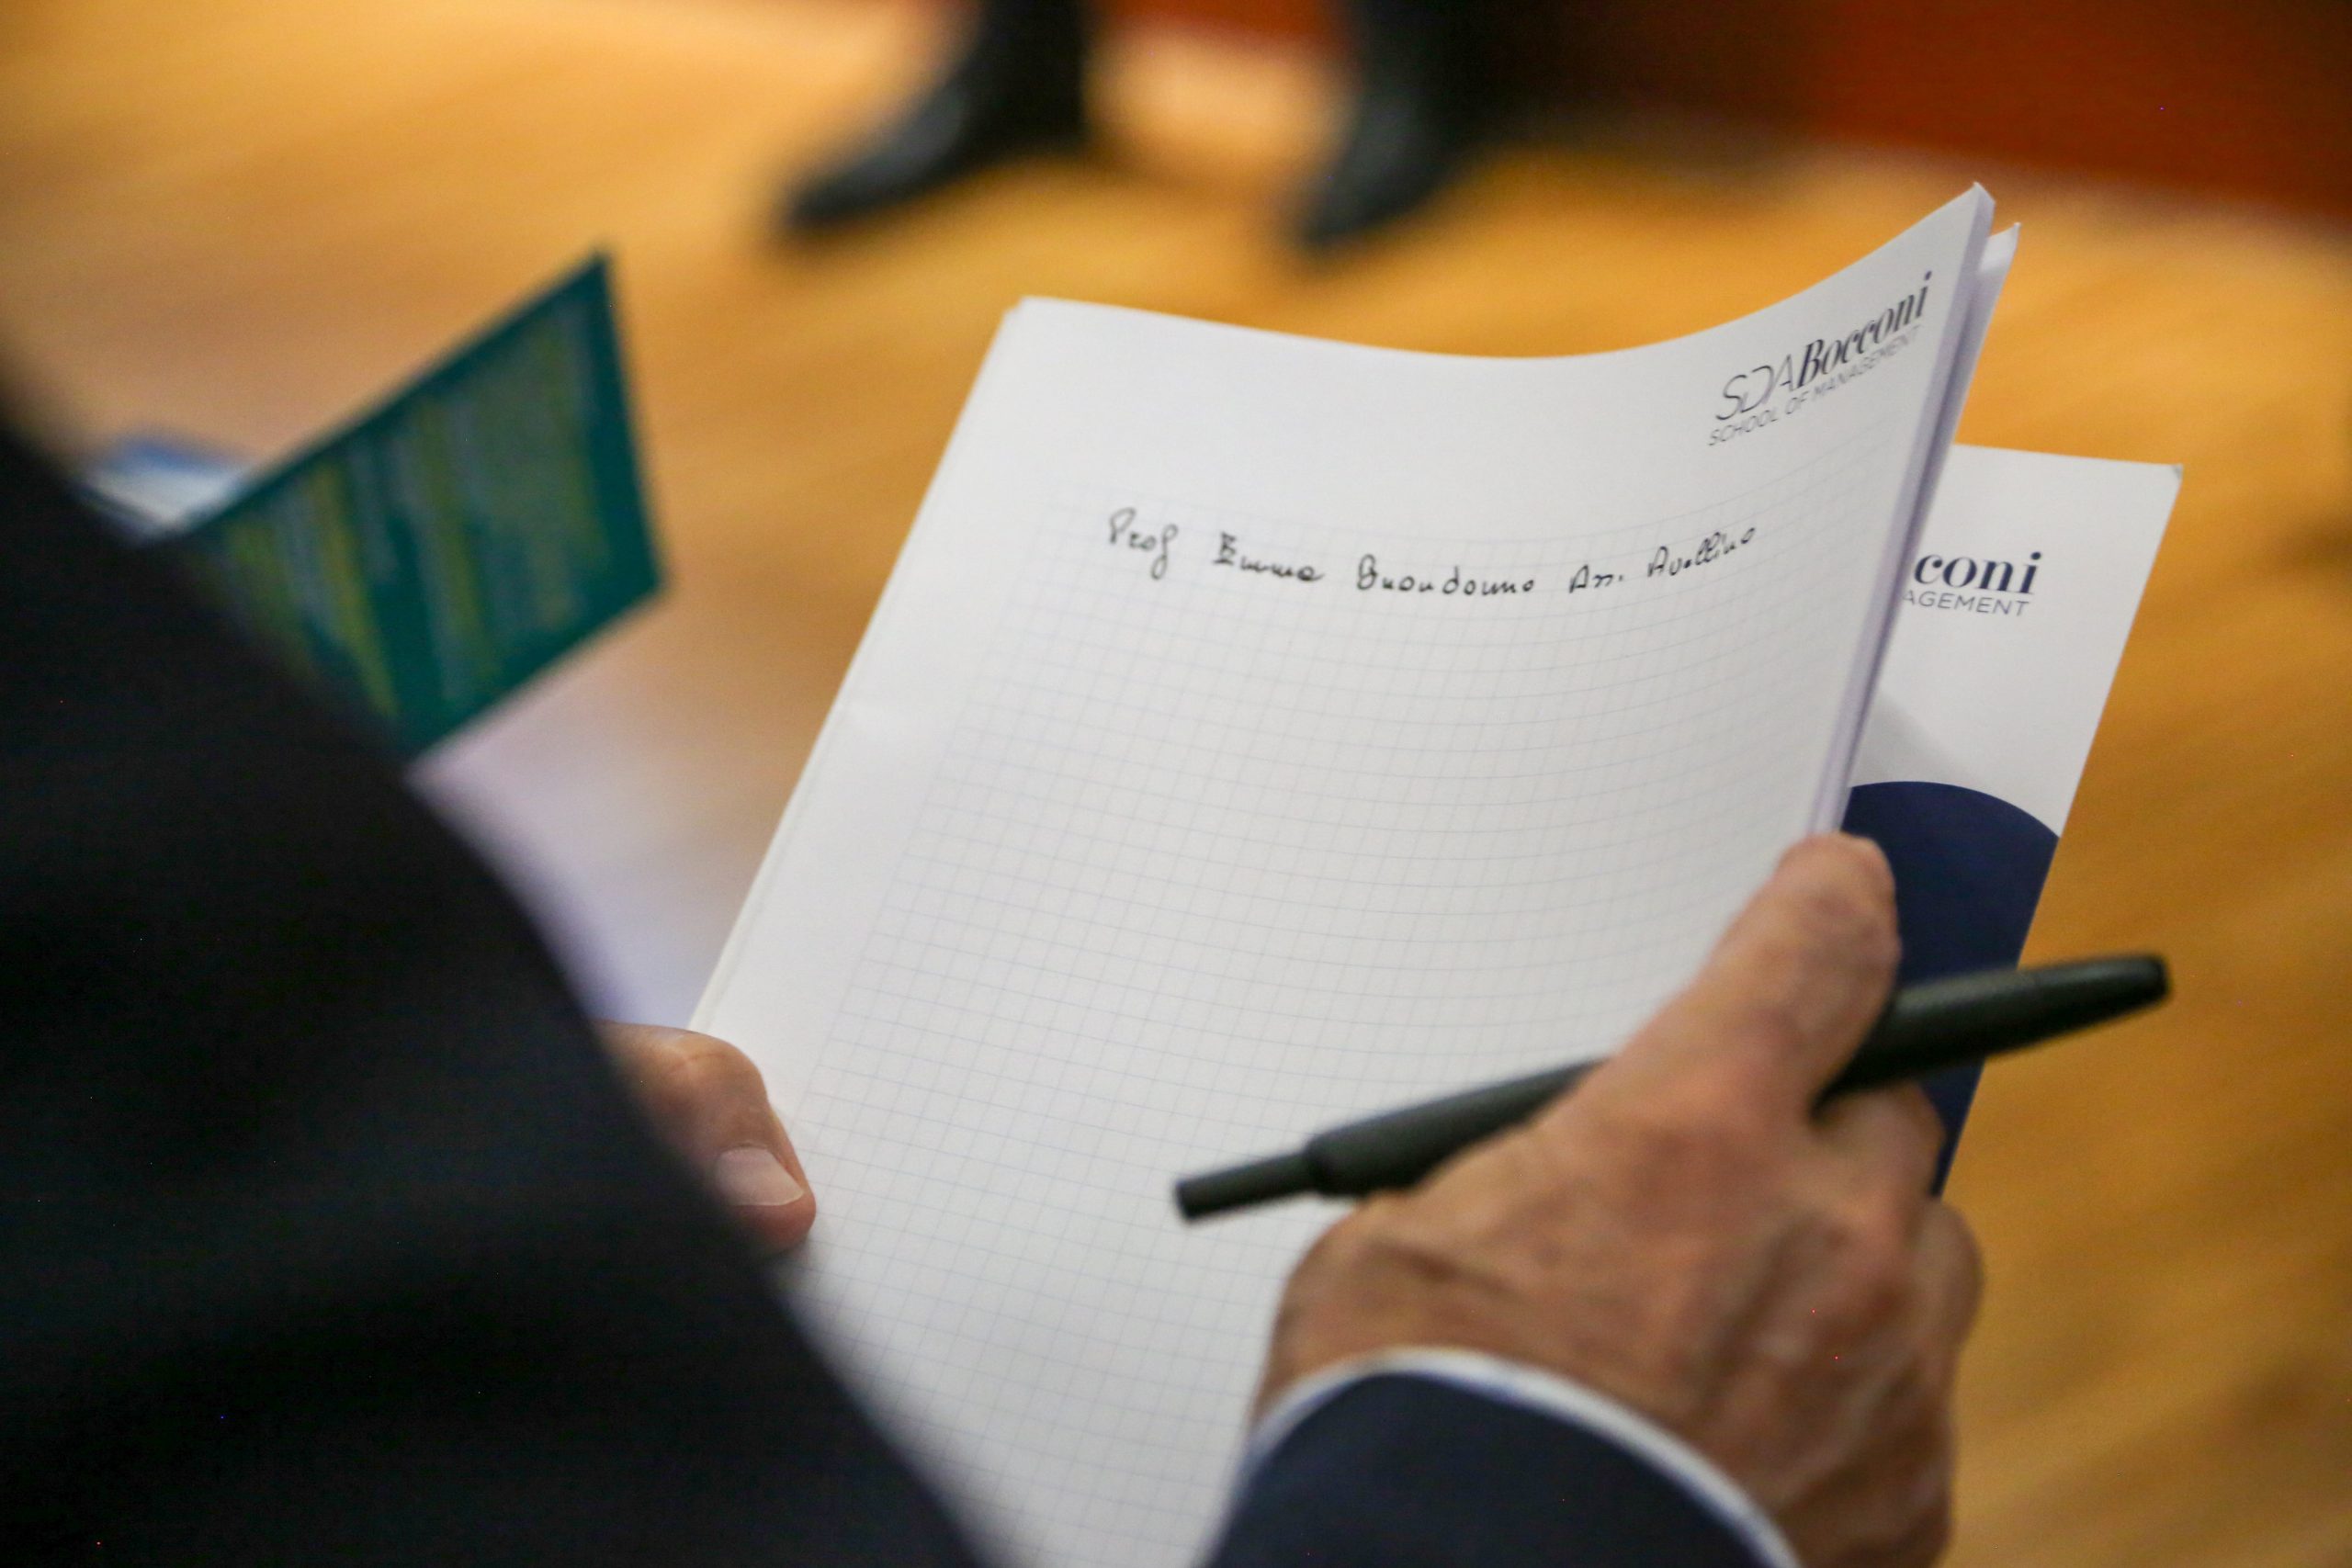 SDABocconi
SCHOOL OF MANAGEMENT
Prof Emma Buondonno Ass. Avellino
cconi
AGEMENT